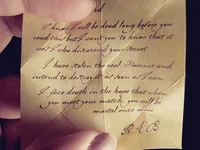 rd
I know I will be dead long before you
read this but I want you to know that it
was I who discovered your secret
I have stolen the real Horcrux and
intend to destroy it as soon as I can
I face death in the hope that when
you meet your match, you will be
mortal once more
R.A.B